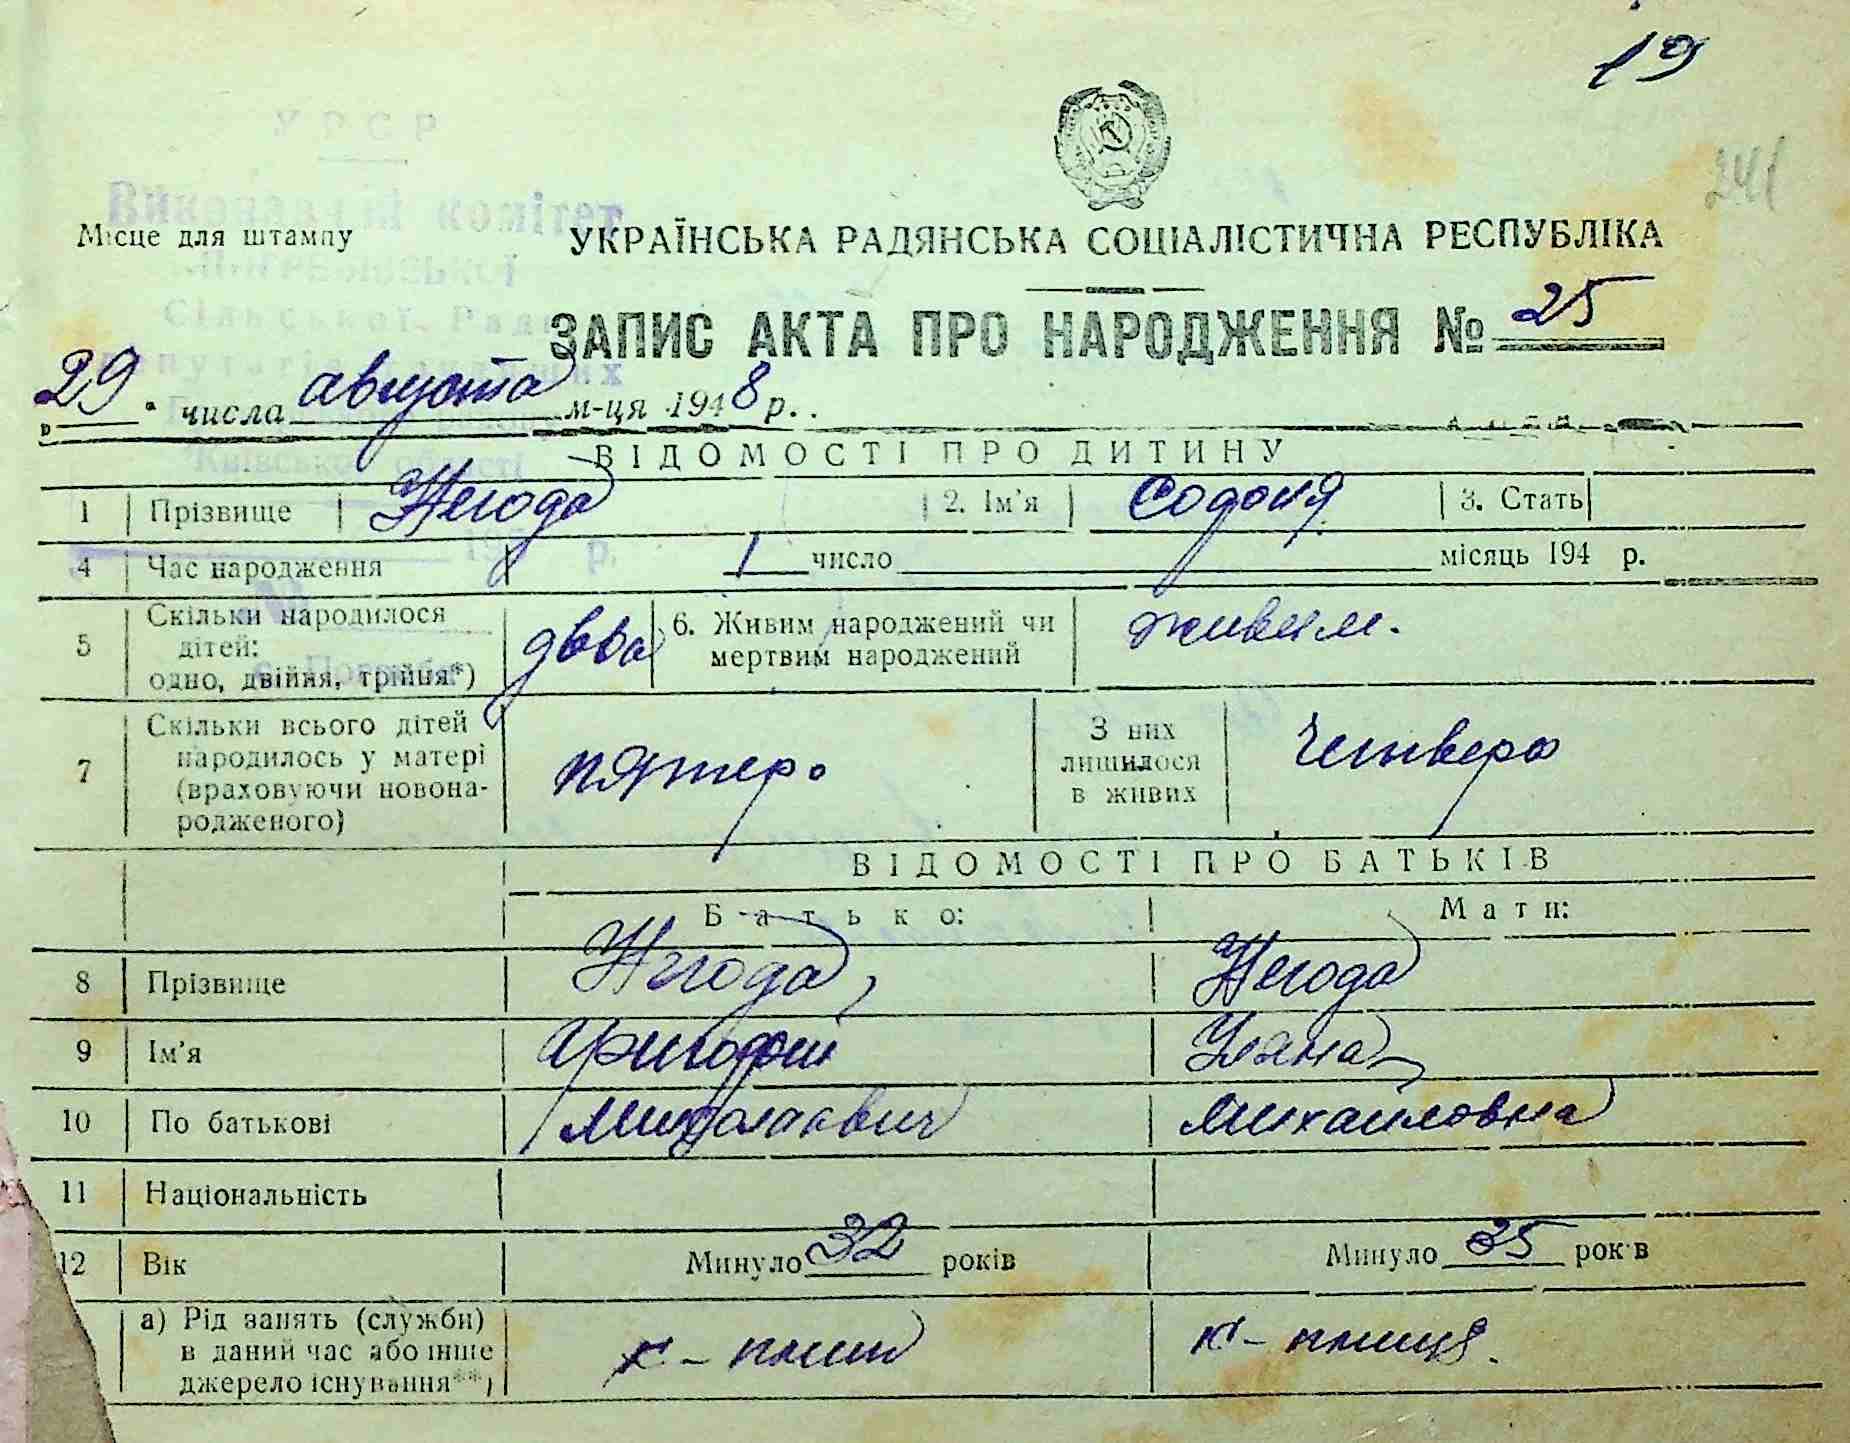 19
241
УРСР
Виконавчий комітет
Місце для штампу
УКРАЇНСЬКА РАДЯНСЬКА СОЦІАЛІСТИЧНА РЕСПУБЛІКА
Сільської Ради
ЗАПИС АКТА ПРО НАРОДЖЕННЯ № 25
29 числа августа м-ця 1948 р.
Київської області
ВІДОМОСТІ ПРО ДИТИНУ
1 Прізвище Негода 2. Ім'я 3. Стать
19 р.
4 Час народження 1 число місяць 194 р.
5 Скільки народилося дітей: одно, двійня, трійня*) двва 6. Живим народжений чи мертвим народжений живим.
7 Скільки всього дітей народилось у матері (враховуючи новонародженого) пятеро З них лишилося в живих четверо
ВІДОМОСТІ ПРО БАТЬКІВ
Батько: Мати:
8 Прізвище Негода Негода
9 Ім'я Григорій Уляна
10 По батькові Миколаевич Михайловна
11 Національність
12 Вік Минуло 32 років Минуло 35 років
а) Рід занять (служби) в даний час або інше джерело існування**) к-пниця.